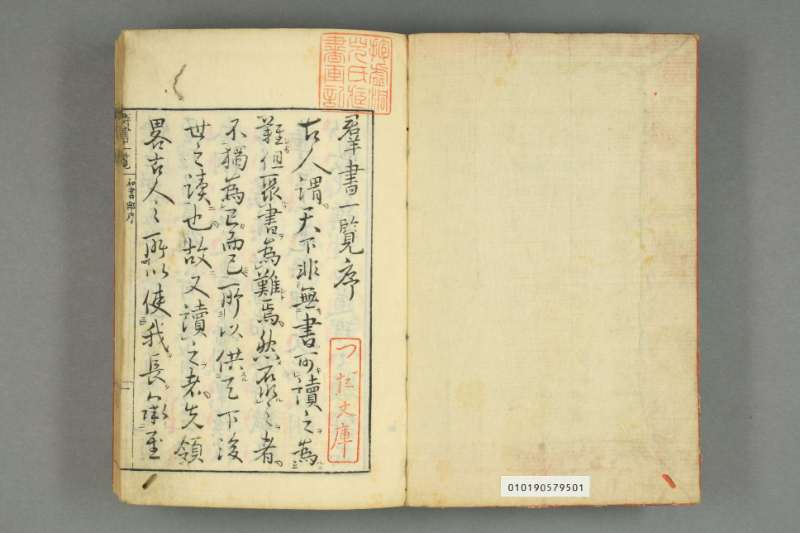 羣書一覧序
古人謂天下非無書可讀之為
難但聚書為難焉然而聚之者
不獨為己而已所以供天下後
世之讀也故又讀之者先領
畧古人之所以使我長
群書一覧
和書部序
つた文庫
010190579501